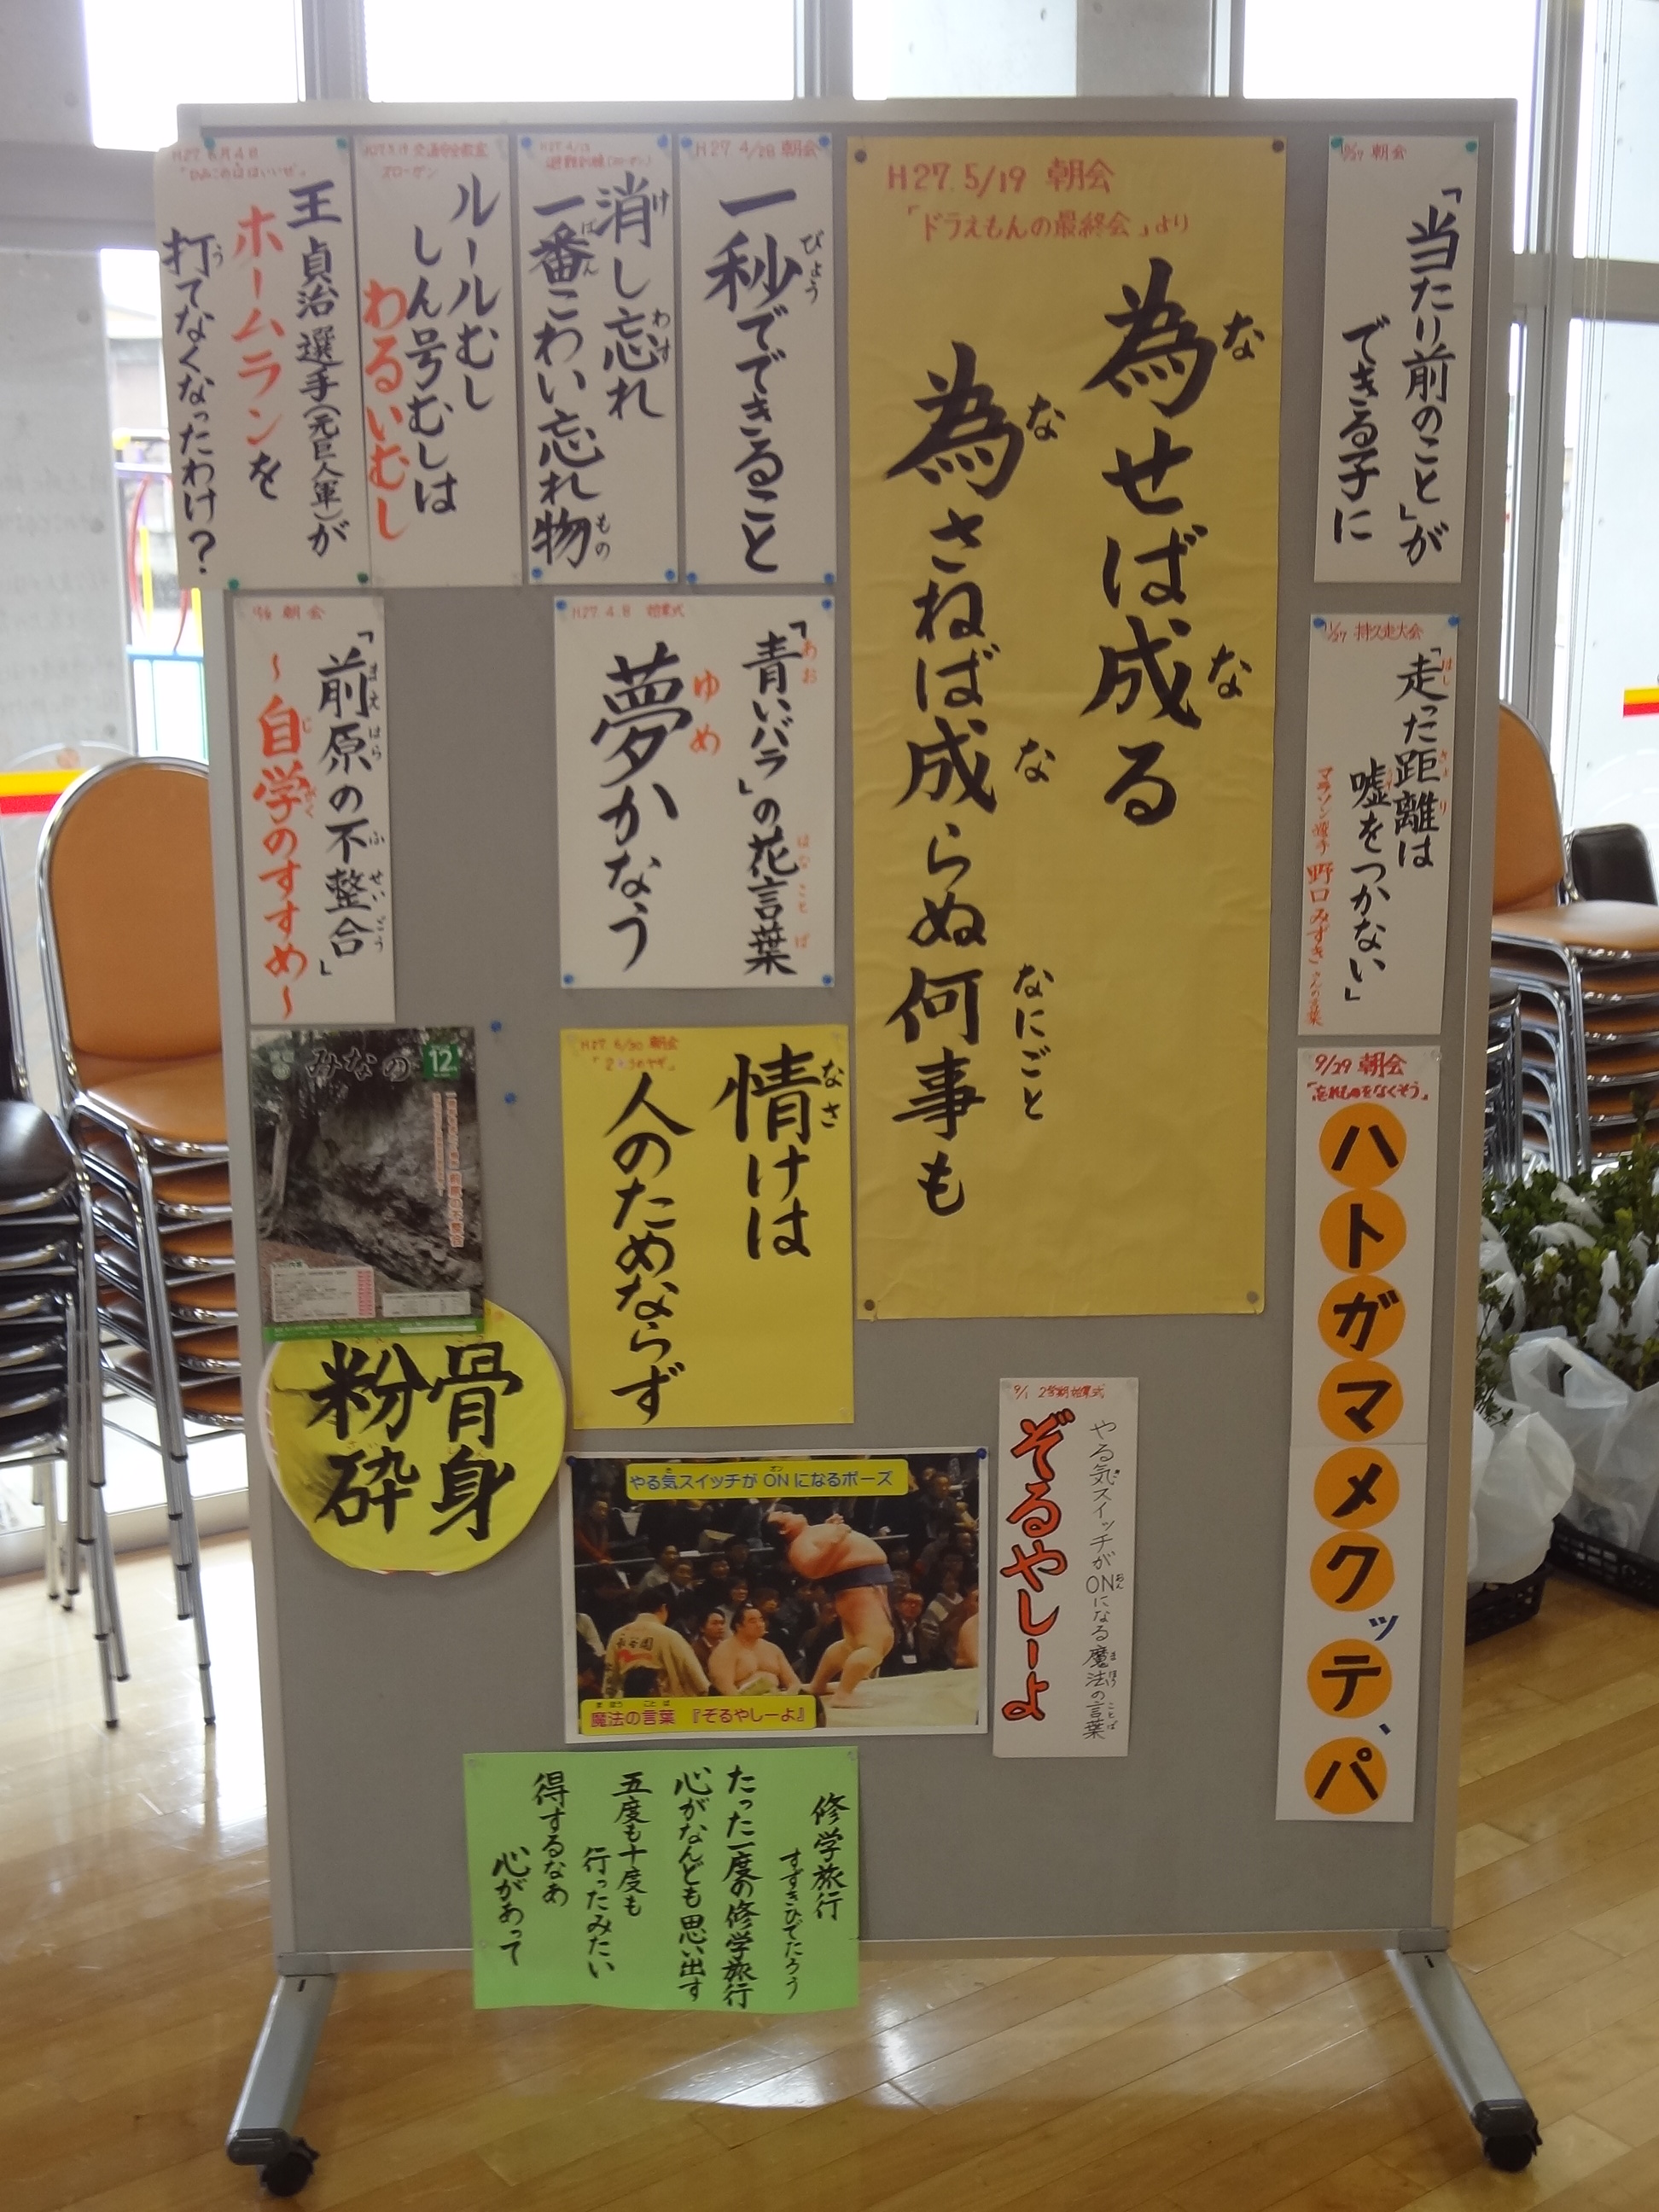 「当たり前のこと」が
できる子に
朝会
11/27 持久走大会
「走った距離は
嘘をつかない」
マラソン選手 野口みずきさんの言葉
9/29 朝会
「忘れものをなくそう」
ハトガマメクッテ、パ
H27. 5/19 朝会
「ドラえもんの最終会」より
為せば成る
為さねば成らぬ何事も
な
な
な
な
なにごと
H27 4/28 朝会
一秒でできること
びょう
H27. 4/13
避難訓練(スローガン)
消し忘れ
一番こわい忘れ物
交通安全教室
スローガン
ルールむし
しん号むしは
わるいむし
H27 6月4日
王貞治選手(元巨人軍)が
ホームランを
打てなくなったわけ?
H27. 4. 8 始業式
「青いバラ」の花言葉
あお
はなことば
夢かなう
ゆめ
朝会
「前原の不整合」
まえはら ふせいごう
~自学のすすめ~
じがく
みなの
12
H27. 6/30 朝会
情けは
なさ
人のためならず
骨身
粉砕
9/1 2学期始業式
やる気スイッチがONになる魔法の言葉
ぞるやしーよ
やる気スイッチが ON になるポーズ
魔法の言葉 『ぞるやしーよ』
まほう ことば
修学旅行
すずきひでたろう
たった一度の修学旅行
心がなんども思い出す
五度も十度も
行ったみたい
得するなあ
心があって